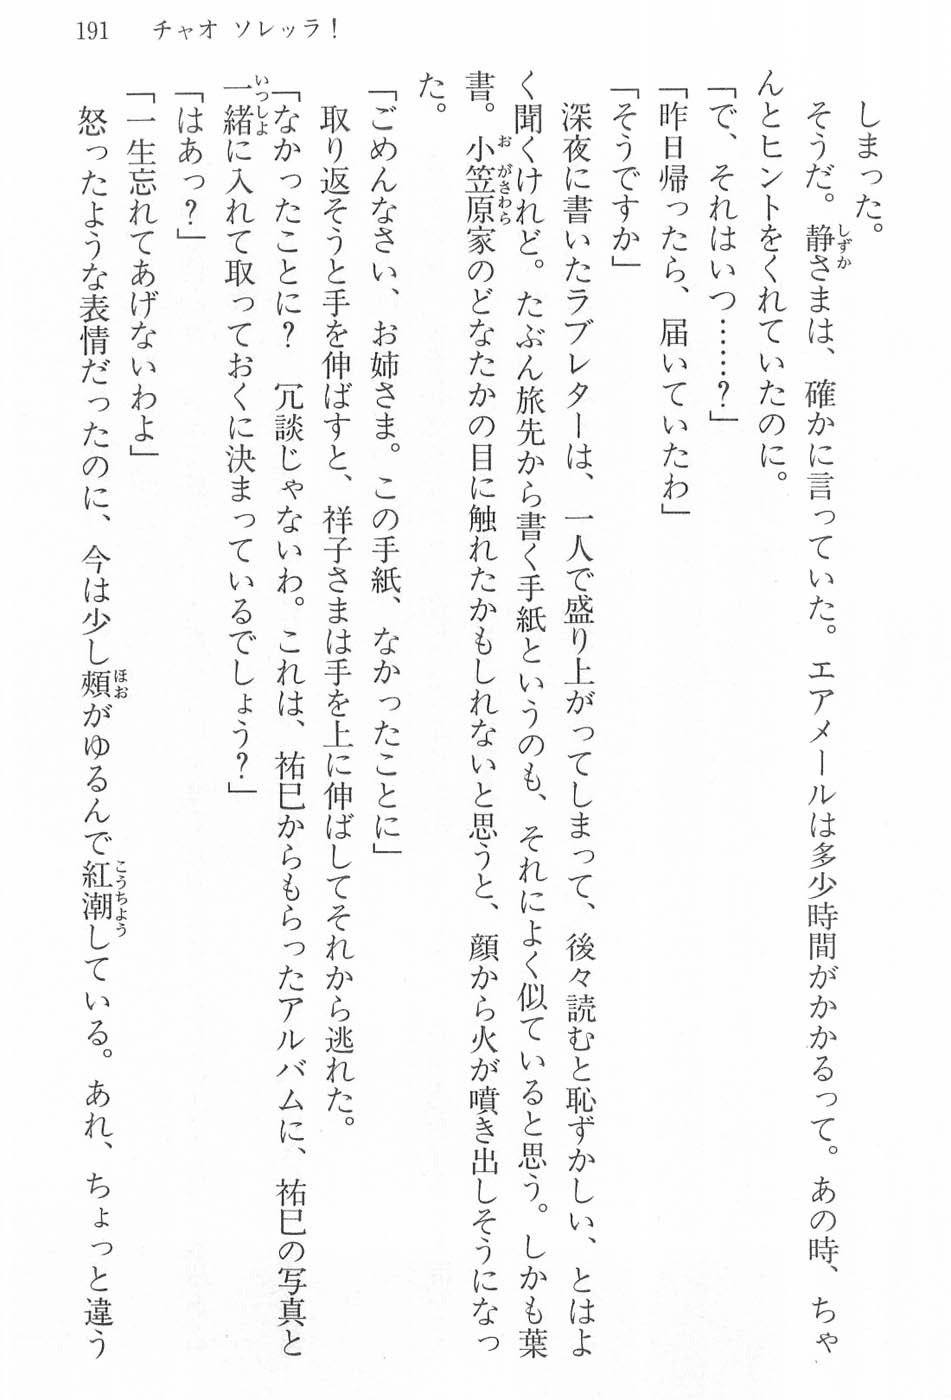 191　チャオ ソレッラ！
しまった。
　そうだ。静さまは、確かに言っていた。エアメールは多少時間がかかるって。あの時、ちゃ
んとヒントをくれていたのに。
「で、それはいつ……？」
「昨日帰ったら、届いていたわ」
「そうですか」
　深夜に書いたラブレターは、一人で盛り上がってしまって、後々読むと恥ずかしい、とはよ
く聞くけれど。たぶん旅先から書く手紙というのも、それによく似ていると思う。しかも葉
書。小笠原家のどなたかの目に触れたかもしれないと思うと、顔から火が噴き出しそうになっ
た。
「ごめんなさい、お姉さま。この手紙、なかったことに」
　取り返そうと手を伸ばすと、祥子さまは手を上に伸ばしてそれから逃れた。
「なかったことに？　冗談じゃないわ。これは、祐巳からもらったアルバムに、祐巳の写真と
一緒に入れて取っておくに決まっているでしょう？」
「はあっ？」
「一生忘れてあげないわよ」
　怒ったような表情だったのに、今は少し頬がゆるんで紅潮している。あれ、ちょっと違う